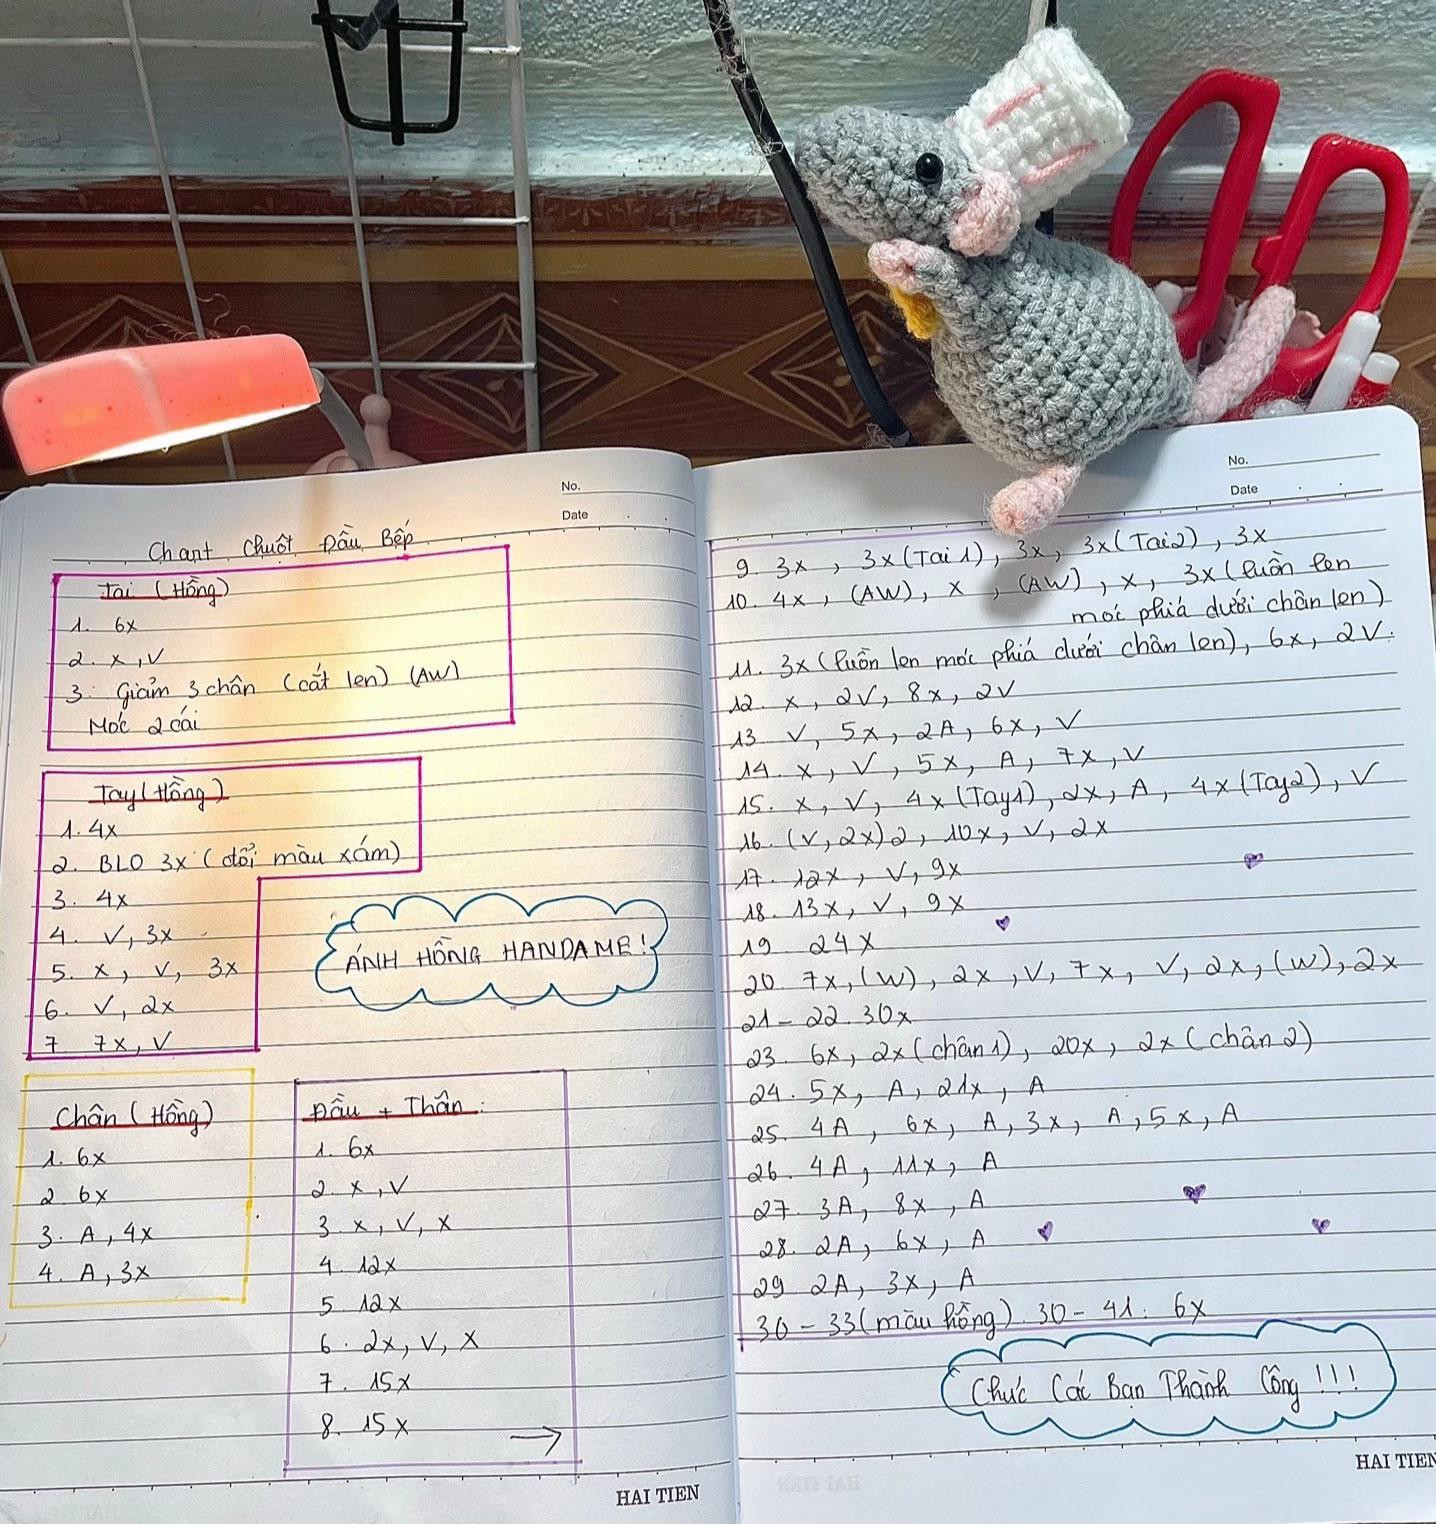 No.
Date
Chart Chuột Đầu Bếp
Tai (Hồng)
1. 6x
2. x, V
3. Giảm 3 chân (cắt len) (AW)
Móc 2 cái
Tay (Hồng)
1. 4x
2. BLO 3x (đổi màu xám)
3. 4x
4. V, 3x
5. x, V, 3x
6. V, 2x
7 7x, V
ÁNH HỒNG HANDAME!
Chân (Hồng)
1. 6x
2 6x
3. A, 4x
4. A, 3x
Đầu + Thân:
1. 6x
2. x, V
3. x, V, x
4. 12x
5. 12x
6. 2x, V, x
7. 15x
8. 15x
→
HAI TIEN
No.
Date
9. 3x, 3x (Tai 1), 3x, 3x (Tai 2), 3x
10. 4x, (AW), x, (AW), x, 3x (luồn len
móc phiá dưới chân len)
11. 3x (luồn len móc phiá dưới chân len), 6x, 2V.
12. x, 2V, 8x, 2V
13 V, 5x, 2A, 6x, V
14. x, V, 5x, A, 7x, V
15. x, V, 4x (Tay 1), 2x, A, 4x (Tay 2), V
16. (V, 2x) 2, 10x, V, 2x
17. 12x, V, 9x
18. 13x, V, 9x
19 24x
20 7x, (W), 2x, V, 7x, V, 2x, (W), 2x
21 - 22. 30x
23. 6x, 2x (chân 1), 20x, 2x (chân 2)
24. 5x, A, 21x, A
25. 4A, 6x, A, 3x, A, 5x, A
26. 4A, 11x, A
27. 3A, 8x, A
28. 2A, 6x, A
29 2A, 3x, A
30 - 33 (màu hồng). 30 - 41: 6x
Chúc Các Bạn Thành Công!!!
HAI TIEN